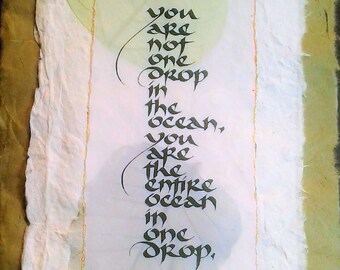 you
are
not
one
drop
in
the
ocean,
you
are
the
entire
ocean
in
one
drop.